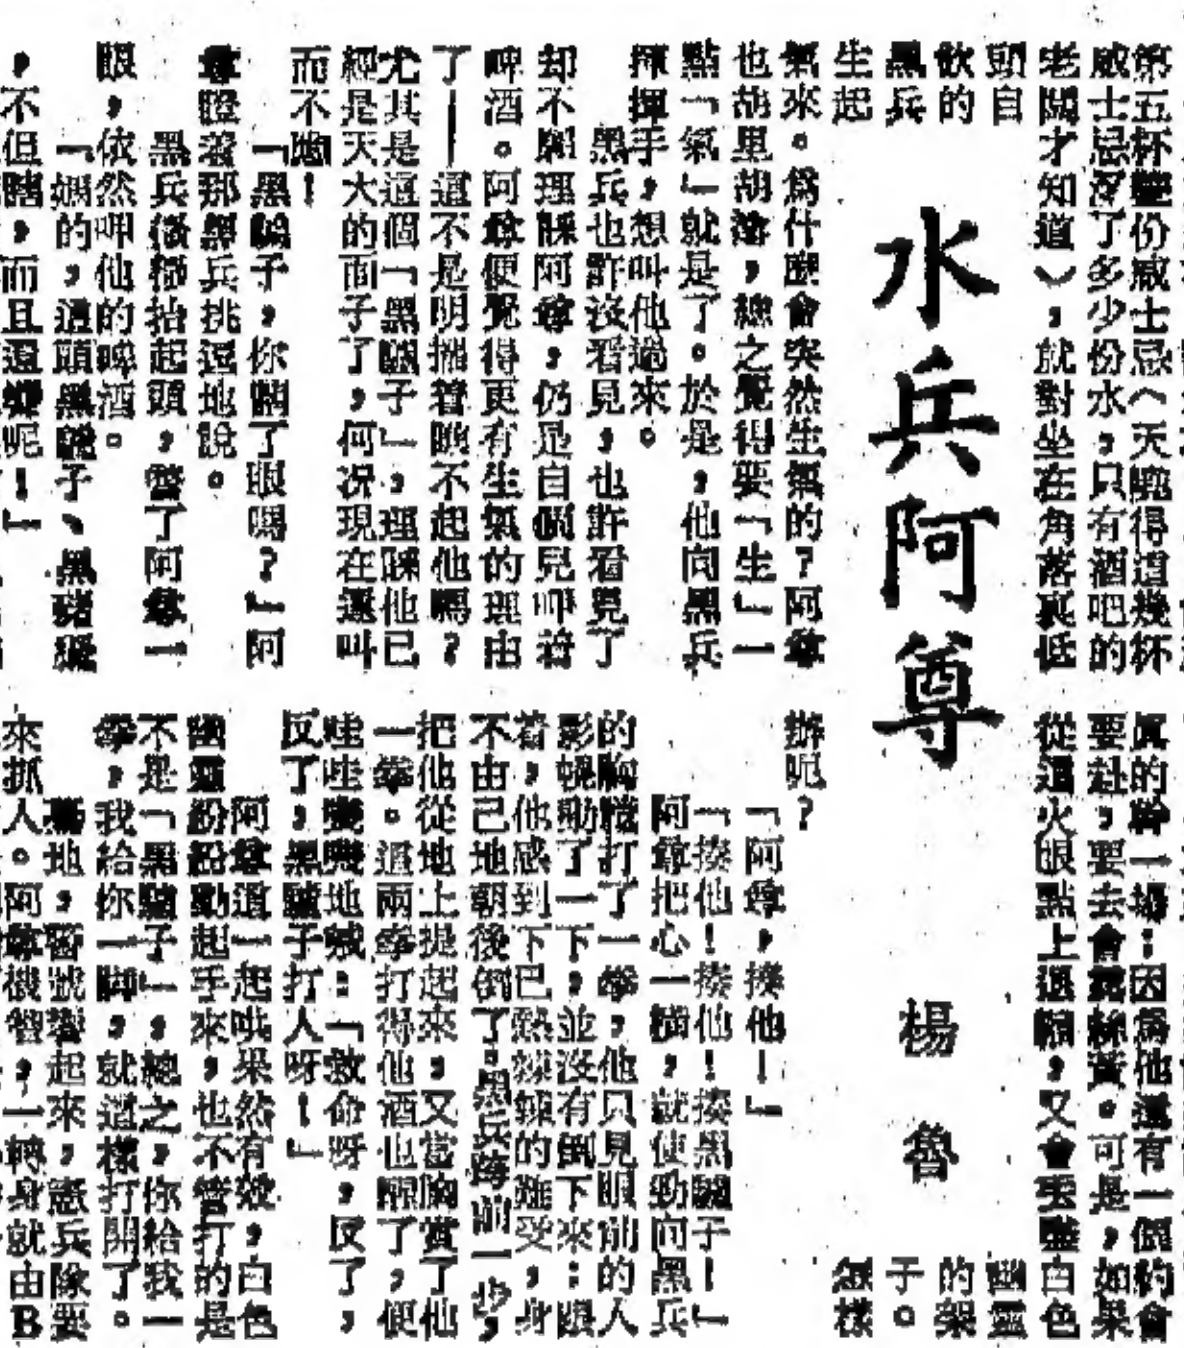 第五杯雙份威士忌（天曉得這幾杯
威士忌浸了多少份水，只有酒吧的
老闆才知道），就對坐在角落裏低
頭自
飲的
黑兵
生起
水兵阿尊
楊魯
氣來。爲什麽會突然生氣的？阿尊
也胡里胡塗，總之覺得要「生」一
點「氣」就是了。於是，他向黑兵
揮揮手，想叫他過來。
黑兵也許沒看見，也許看見了
却不願理睬阿尊，仍是自個兒呷着
啤酒。阿尊便覺得更有生氣的理由
了——這不是明擺着瞧不起他嗎？
尤其是這個「黑騾子」，理睬他已
經是天大的面子了，何况現在還叫
而不動！
「黑騾子，你瞎了眼嗎？」阿
尊瞪着那黑兵挑逗地說。
黑兵微微抬起頭，瞥了阿尊一
眼，依然呷他的啤酒。
「媽的，這頭黑騾子、黑豬玀
，不但瞎，而且還聾呢！」
眞的幹一場；因爲他還有一個約會
要赴，要去會露絲黃。可是，如果
從這火眼點上退縮，又會丟盡白色
幽靈
的架
子。
怎樣
辦呢？
「阿尊，揍他！」
「揍他！揍他！揍黑騾子！」
阿尊把心一橫，就使勁向黑兵
的胸膛打了一拳，他只見眼前的人
影幌動了一下，並沒有倒下來；跟
着，他感到下巴熱辣辣的難受，身
不由己地朝後倒了。黑兵跨前一步，
把他從地上提起來，又當胸賞了他
一拳。這兩拳打得他酒也醒了，便
哇哇地喊：「救命呀，反了，
反了，黑騾子打人呀！」
阿尊這一起哄果然有效，白色
幽靈紛紛動起手來，也不管打的是
不是「黑騾子」，總之，你給我一
拳，我給你一脚，就這樣打開了。
驀地，警號響起來，憲兵隊要
來抓人。阿尊機智，一轉身就由B